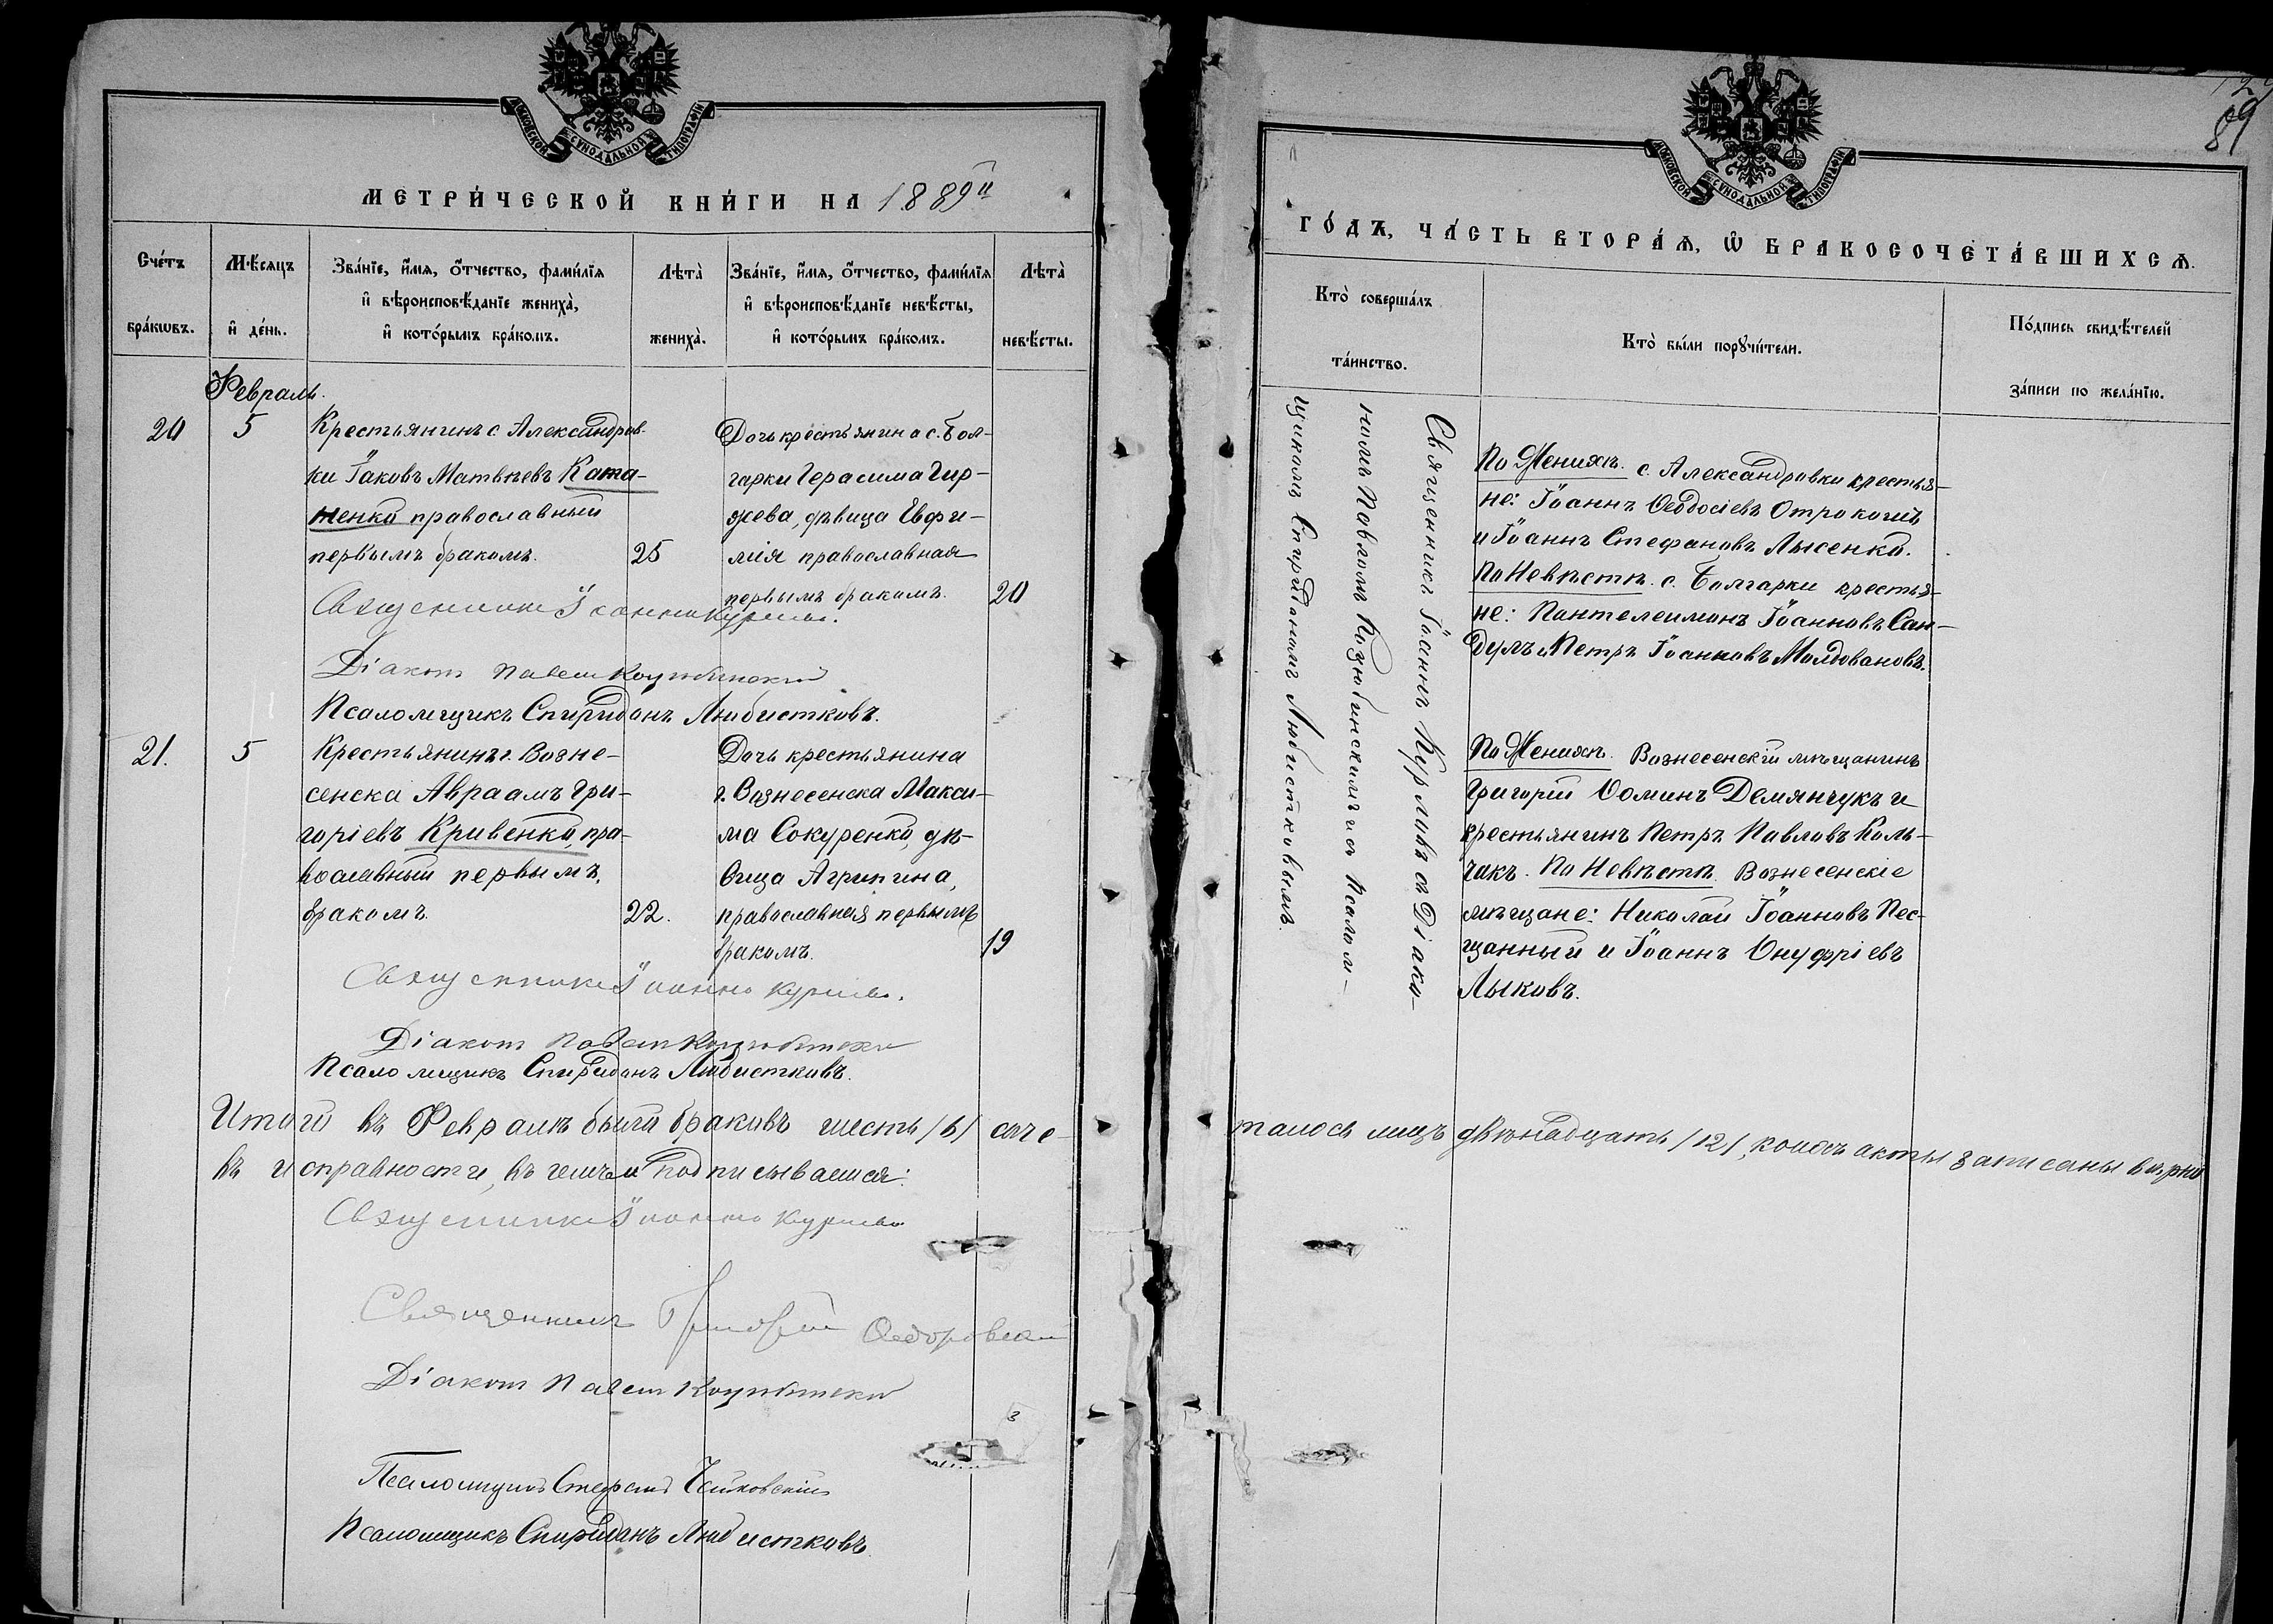 МОСКОВСКОЙ СѴНОДАЛЬНОЙ ТИПОГРАФІИ
МЕТРИ́ЧЕСКОЙ КНИ́ГИ НА 1889й
Сче́тъ бра́кѡвъ.
Мѣ́сяцъ и҆ де́нь.
Зва́нїе, и҆́мя, ѻ҆́тчество, фами́лїя
и҆ вѣроисповѣ́данїе жениха̀,
и҆ кото́рымъ бра́комъ.
Лѣта̀ жениха̀.
Зва́нїе, и҆́мя, ѻ҆́тчество, фами́лїя
и҆ вѣроисповѣ́данїе невѣ́сты,
и҆ кото́рымъ бра́комъ.
Лѣта̀ невѣ́сты.
Февраль.
20
5
Крестьянинъ с. Александров-
ки Іаковъ Матвѣевъ Ката-
женко православный
первымъ бракомъ.
25
Дочь крестьянина с. Бол-
гарки Герасима Гир-
жева, дѣвица Евфи-
мія православная
первымъ бракомъ.
20
Священникъ Іоаннъ Курловъ.
Діаконъ Павелъ Коцюбинскій
Псаломщикъ Спиридонъ Любистковъ.
21.
5
Крестьянинъ г. Возне-
сенска Авраамъ Гри-
горіевъ Кривенко, пра-
вославный первымъ
бракомъ.
22.
Дочь крестьянина
г. Вознесенска Макси-
ма Сокуренко, дѣ-
вица Агрипина,
православная первымъ
бракомъ.
19
Священникъ Іоаннъ Курловъ.
Діаконъ Павелъ Коцюбинскій
Псаломщикъ Спиридонъ Любистковъ.
Итого въ Февралѣ было браковъ шесть /6/ соче-
въ исправности, въ чемъ и подписываемся:
Священникъ Іоаннъ Курловъ
Священникъ Григорій Ѳедоровскій
Діаконъ Павелъ Коцюбинскій
Псаломщикъ Стефанъ Чайковскій
Псаломщикъ Спиридонъ Любистковъ
89
МОСКОВСКОЙ СѴНОДАЛЬНОЙ ТИПОГРАФІИ
ГО́ДЪ, ЧА́СТЬ ВТОРА́Я, Ѡ҆ БРАКОСОЧЕТА́ВШИХСЯ.
Кто̀ соверша́лъ та́инство.
Кто̀ бы́ли порꙋчи́тели.
По́дпись свидѣ́телей за́писи по жела́нїю.
Священникъ Іоаннъ Курловъ съ Діако-
номъ Павломъ Коцюбинскимъ и съ Псалом-
щикомъ Спиридономъ Любистковымъ.
По Женихѣ. с. Александровки крестья-
не: Іоаннъ Ѳеодосіевъ Отрокошъ
и Іоаннъ Стефановъ Лысенко.
По Невѣстѣ. с. Болгарки крестья-
не: Пантелеимонъ Іоанновъ Сан-
дулъ и Петръ Іоанновъ Молдовановъ.
По Женихѣ. Вознесенскій мѣщанинъ
Григорій Ѳоминъ Демянчукъ и
крестьянинъ Петръ Павловъ Коль-
чакъ. По Невѣстѣ. Вознесенскіе
мѣщане: Николай Іоанновъ Пес-
щанный и Іоаннъ Онуфріевъ
Лыковъ.
талось лицъ двѣнадцать /12/, коихъ акты записаны вѣрно